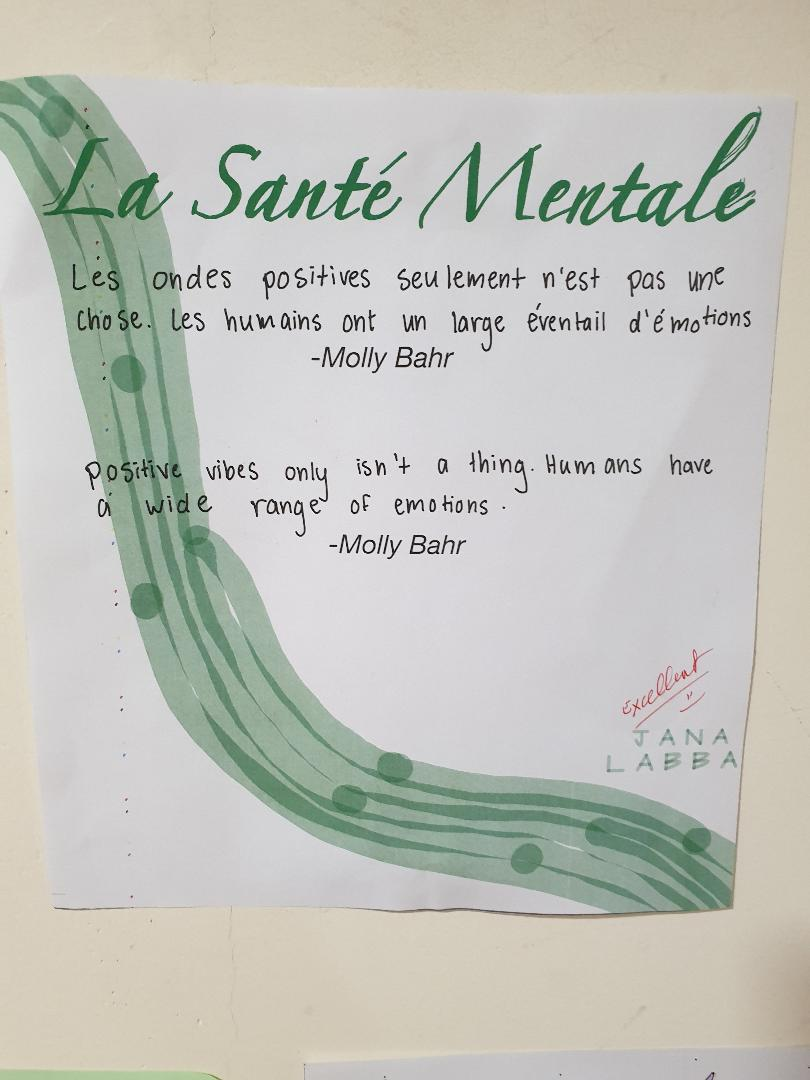 La Santé Mentale
Les ondes positives seulement n'est pas une
chose. Les humains ont un large éventail d'émotions
-Molly Bahr
Positive vibes only isn't a thing. Humans have
a wide range of emotions.
-Molly Bahr
Excellent
JANA
LABBA